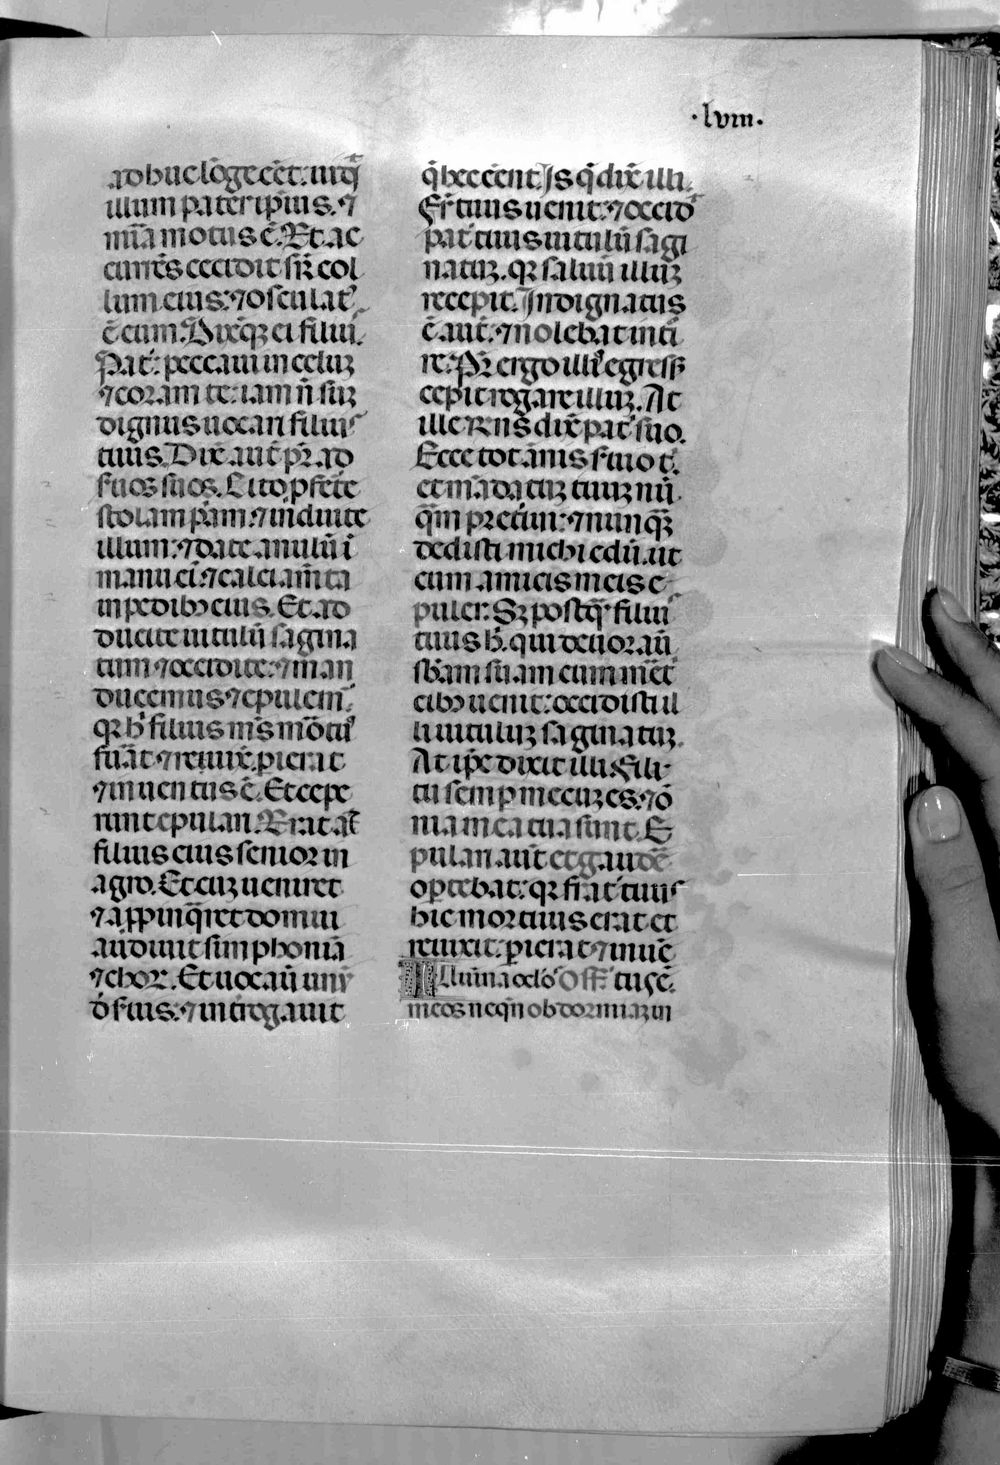 ·lviii·
adhuc lo̅ge e̅e̅t: uidꝫ
illum pater ipius. ⁊
mi̅a motus e̅. Et ac
curre̅s cecidit sup̅ col
lum eius: ⁊ osculat᷑
e̅ eum. Dixitqꝫ ei filiu᷒.
Pat᷑: peccaui in celuꝫ
⁊ coram te: iam n̅ suꝫ
dignus uocari filiu᷒
tuus. Dix̅ aut̅ pr̅ ad
suos s̅uos. Cito ꝓferte
stolam p̅am: ⁊ induite
illum: ⁊ date anulu̅ i̅
manu ei᷒: ⁊ calciam̅ta
in pedibꝫ eius. Et ad
ducite uitulu̅ sagina
tum ⁊ occidite: ⁊ man
ducemus ⁊ epulem᷒:
qꝛ h̅ filius m̅s mo̅tu᷒
fu̅at ⁊ reuix̅. pierat
⁊ inuentus e̅. Et cepe
runt epulari. Erat at̅
filius eius senior in
agro. Et cuꝫ ueniret
⁊ appinq̅ret domui
audiuit simphonia̅
⁊ choꝝ. Et uocau̅ unu̅
d̅ s̅uis: ⁊ int̅rogauit
q̅ hec e̅e̅nt. Is q̅ dix̅ illi.
Fr̅ tuus uenit: ⁊ occid᷑
pat᷑ tuus uitulu̅ sagi
natuꝫ. qꝛ saluu̅ illuꝫ
recepit. Indignatus
e̅ aut̅: ⁊ nolebat int̅i
re. Pr̅ ergo illi᷒ egress᷒
cepit rogare illuꝫ. At
ille rn̅s dix̅ pat᷑ suo.
Ecce tot a̅nis s̅uio t᷑.
et ma̅datuꝫ tuuꝫ nu̅
q̅m pret̅iui: ⁊ nunqꝫ
dedisti michi edu̅. ut
cum amicis meis e
puler: Sꝫ postq̅ filiu᷒
tuus h̅. qui deuorau̅
sb̅am suam cum m̅et̅
cibꝫ uenit: occidisti il
li uituluꝫ saginatuꝫ.
At ip̅e dixit illi. Fili
tu semp mecuꝫ es: ⁊ o̅
nia mea tua sunt. E
pulari aut̅ et gaude̅
op̅tebat: qꝛ fr̅at᷑ tuu᷒
hic mortuus erat et
reuixit: pierat ⁊ inue̅
Illu̅ina oclo᷒ Off̅. tus e̅.
meos neqn̅ obdormiaꝫ in